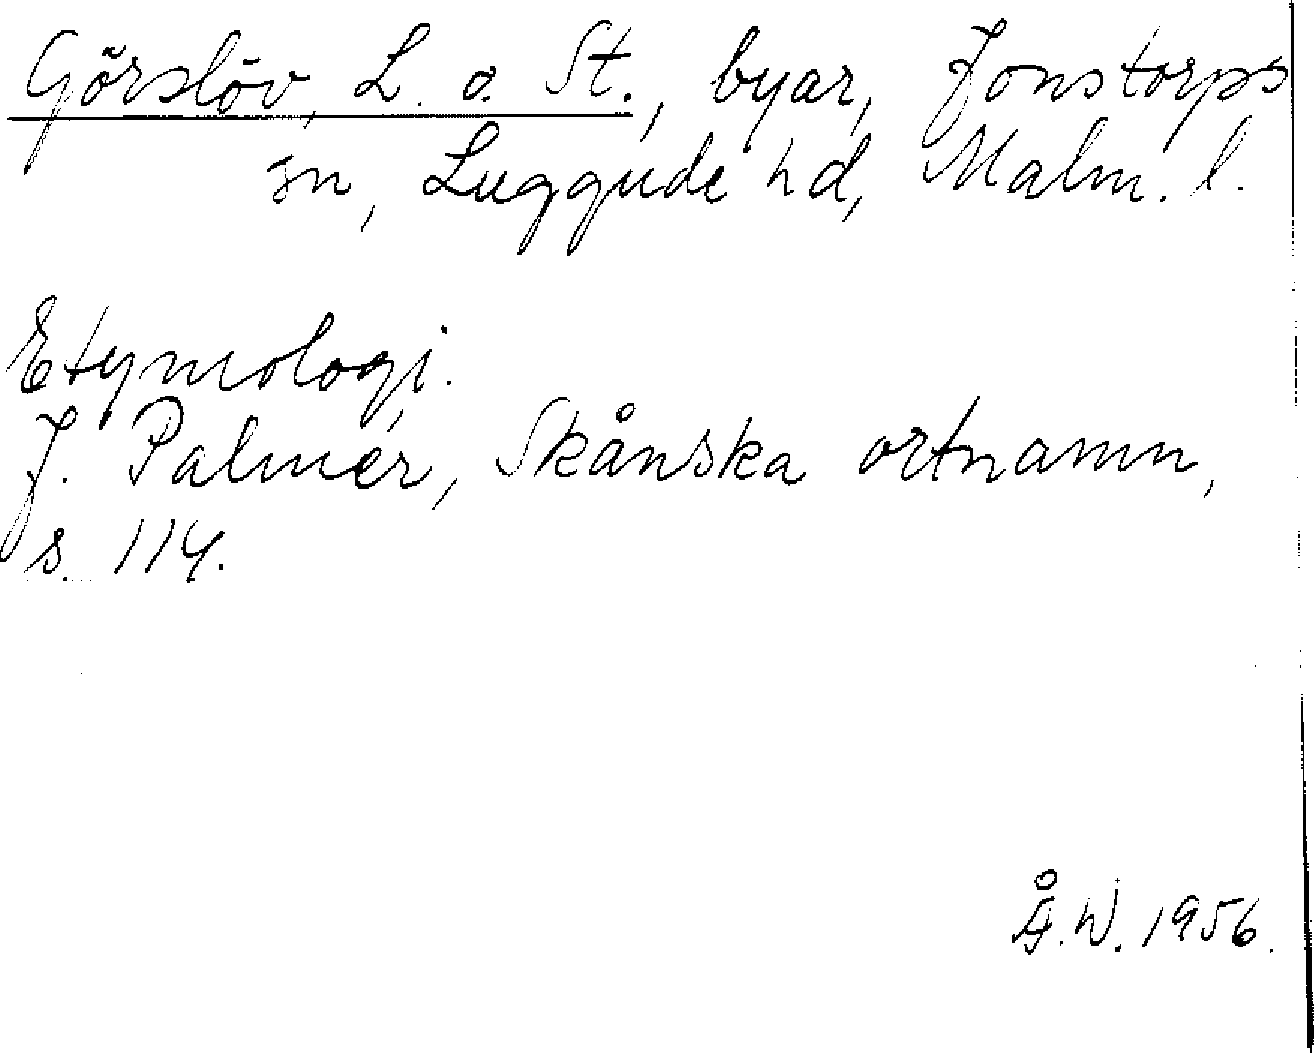 Görslöv, L. o. St., byar, Jonstorps
sn, Luggude hd, Malm. l.
Etymologi.
J. Palmér, Skånska ortnamn,
s. 114.
Å.W. 1956.